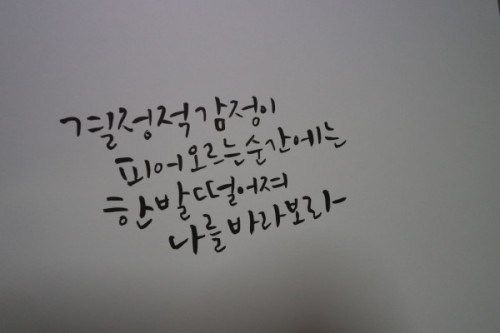 결정적 감정이
피어오르는 순간에는
한발 떨어져
나를 바라보라